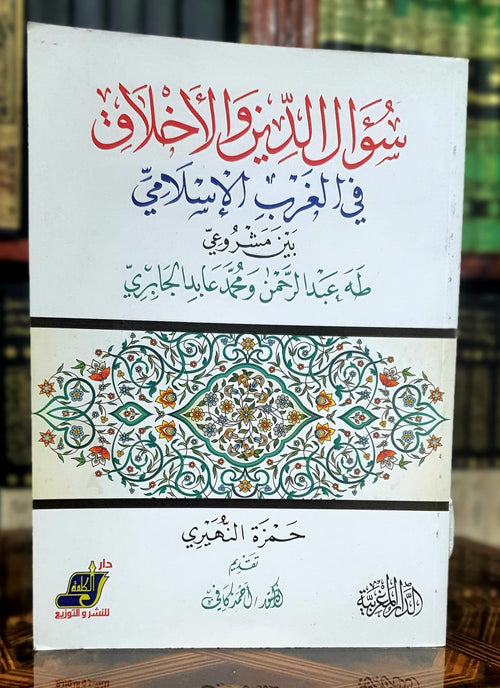 سُؤَالُ الدِّينِ وَالأَخْلَاقِ
فِي الغَرْبِ الإِسْلَامِيِّ
بَيْنَ مَشْرُوعَيْ
طَهَ عَبْدِ الرَّحْمٰنِ وَمُحَمَّد عَابِد الجَابِرِيِّ
حَمْزَة النُّهَيْرِي
تَقْدِيم
الدكتور/ أحمد كافي
دار
الكلمة
للنشر والتوزيع
الدَّارُ المَغْرِبِيَّة